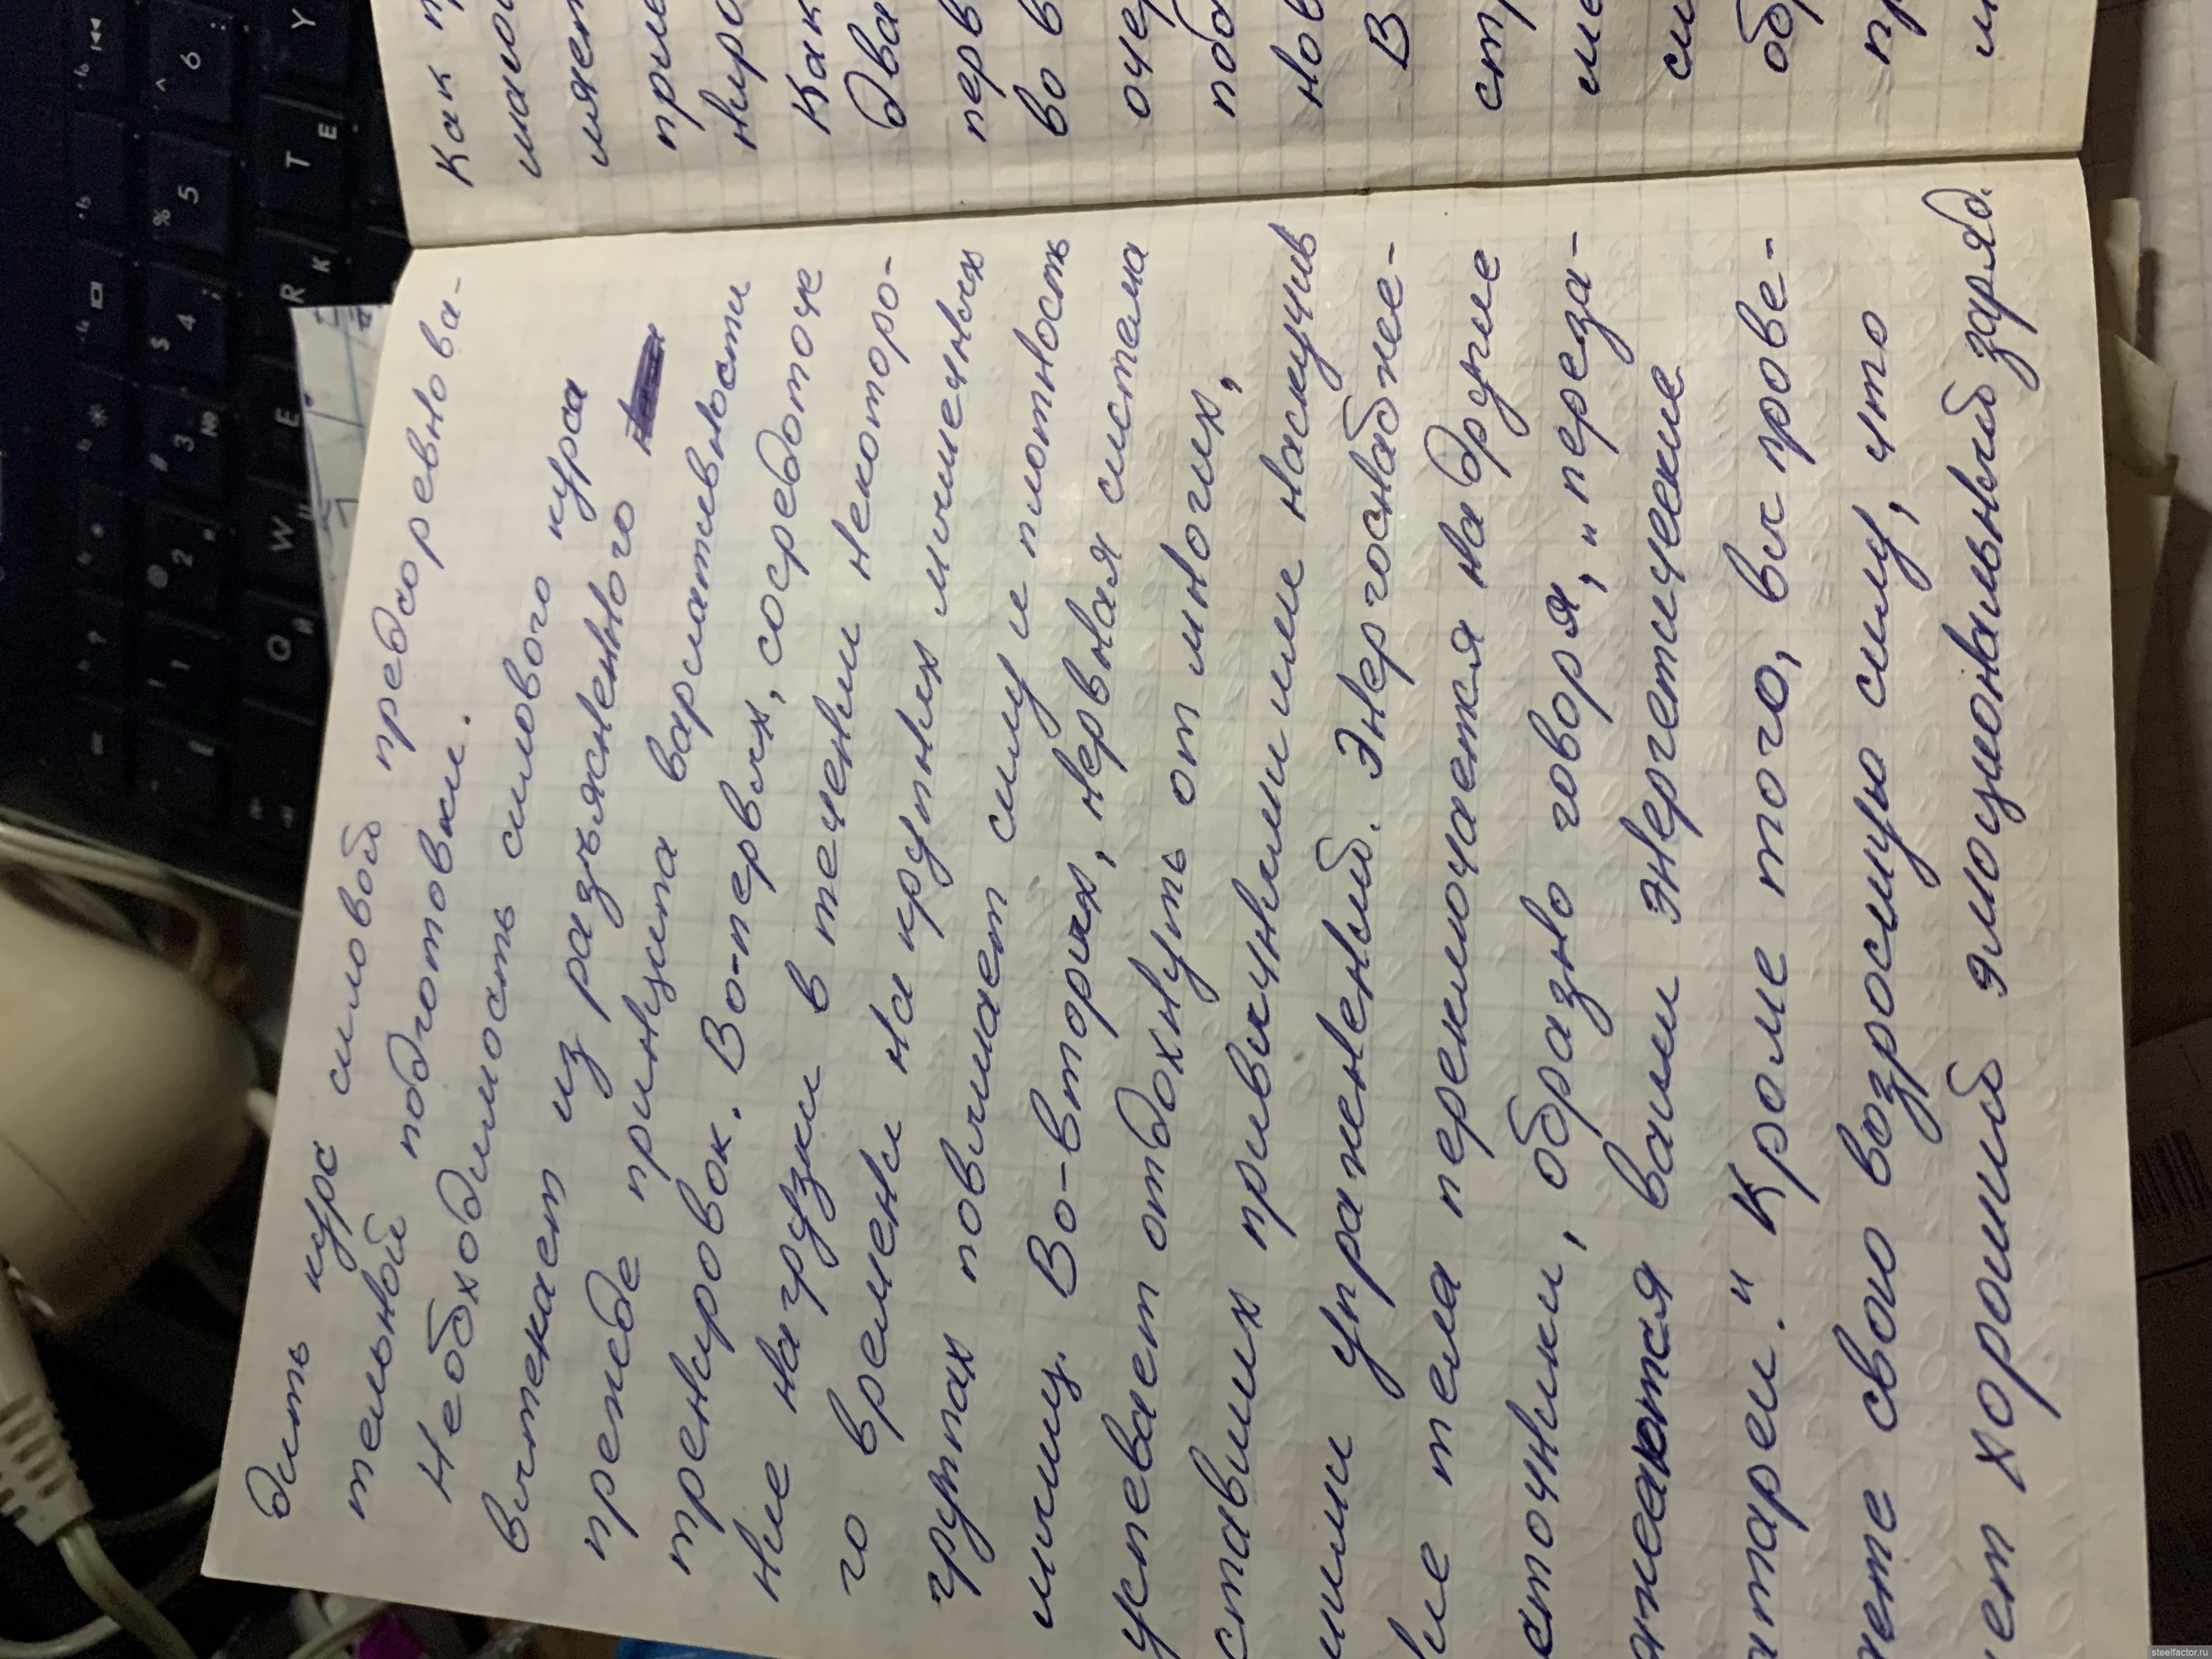 дить курс силовой предсоревнова-
тельной подготовки.
Необходимость силового курса
вытекает из разъясненного
прежде принципа вариативности
тренировок. Во-первых, сосредоточе
ние нагрузки в течении некоторо-
го времени на крупных мышечных
групах повышает силу и плотность
мышц. Во-вторых, нервная система
успевает отдохнуть от многих,
ставших привычными или наскучив
шими упражнений. Энергоснабже-
ние тела переключается на другие
сточники, образно говоря, „переза-
ряжаются ваши энергетические
атареи." Кроме того, вы прове-
ряете свою возросшую силу, что
ает хороший эмоциональный заряд.
Как п
мало
ляет
при
ниро
Как
два
перв
во в
очер
поба
нов
В
ст
ме
си
обр
пр
Q W E R T Y
1 2 3 4 5 6
steelfactor.ru